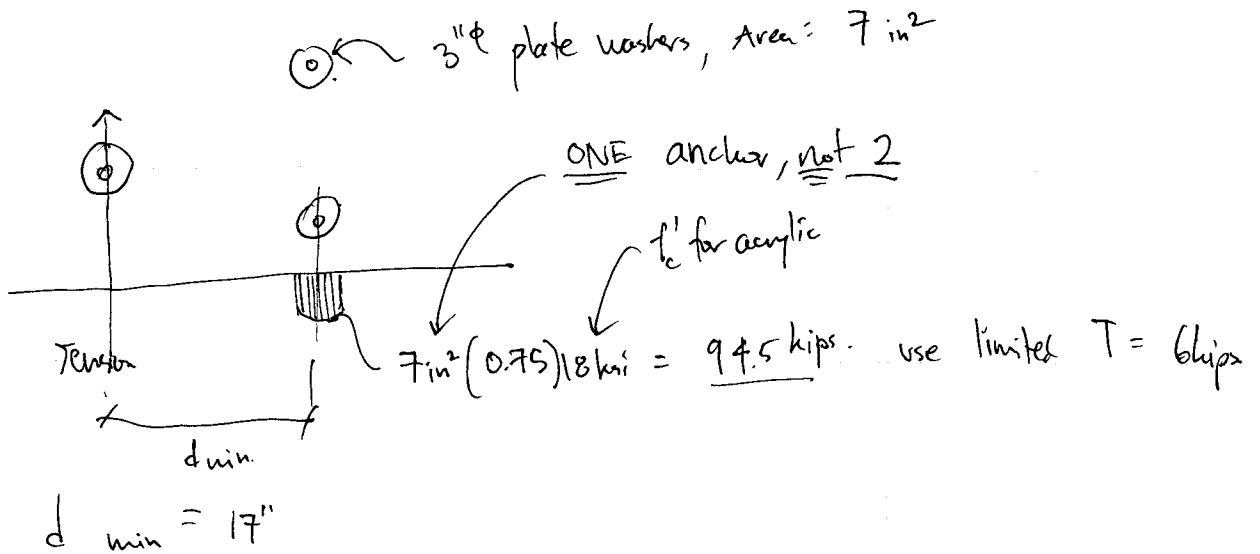 3"φ plate washers, Area: 7 in²
ONE anchor, not 2
f'c for acrylic
Tension
7in²(0.75)18ksi = 94.5 kips. use limited T = 6kips
d min.
d min = 17"